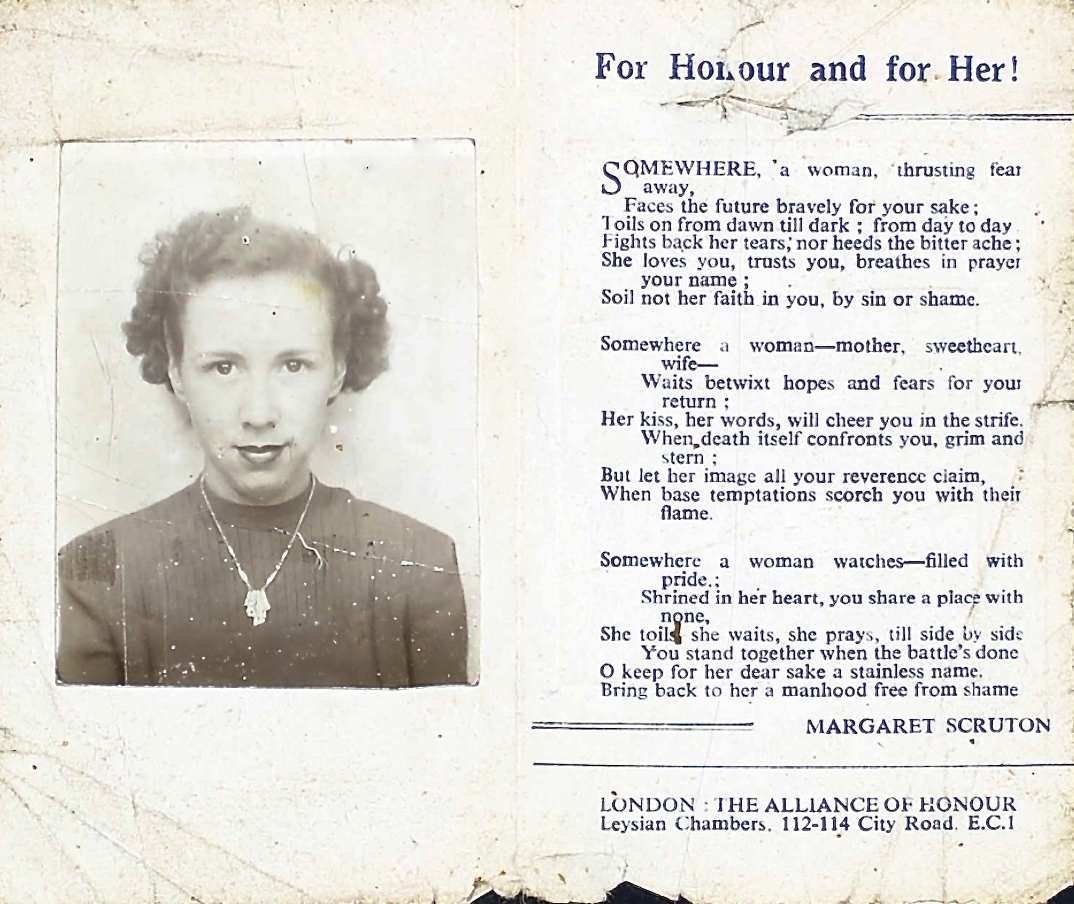 For Honour and for Her!
SOMEWHERE, a woman, thrusting fear
away,
Faces the future bravely for your sake ;
Toils on from dawn till dark ; from day to day
Fights back her tears, nor heeds the bitter ache ;
She loves you, trusts you, breathes in prayer
your name ;
Soil not her faith in you, by sin or shame.
Somewhere a woman—mother, sweetheart,
wife—
Waits betwixt hopes and fears for your
return ;
Her kiss, her words, will cheer you in the strife,
When death itself confronts you, grim and
stern ;
But let her image all your reverence claim,
When base temptations scorch you with their
flame.
Somewhere a woman watches—filled with
pride ;
Shrined in her heart, you share a place with
none,
She toils, she waits, she prays, till side by side
You stand together when the battle's done
O keep for her dear sake a stainless name.
Bring back to her a manhood free from shame
MARGARET SCRUTON
LONDON : THE ALLIANCE OF HONOUR
Leysian Chambers, 112-114 City Road, E.C.1